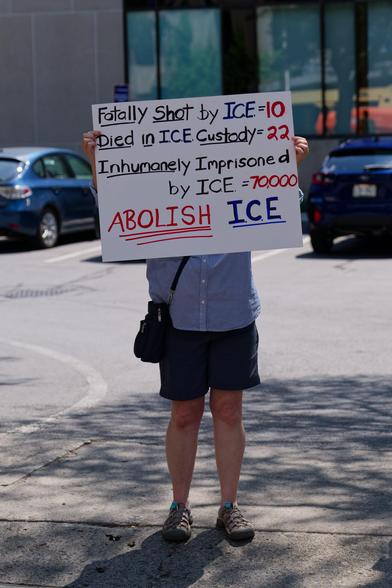 Fatally Shot by ICE = 10
Died in ICE Custody = 22
Inhumanely Imprisoned
by ICE = 70,000
ABOLISH ICE